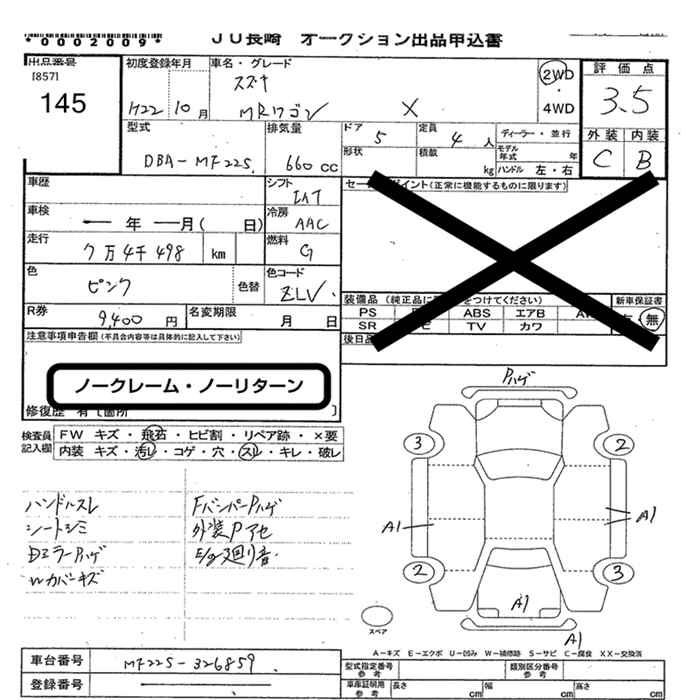 *0002009*
JU長崎 オークション出品申込書
出品番号
[857]
145
初度登録年月
H22年 10月
車名・グレード
スズキ
MRワゴン X
2WD
・
4WD
評価点
3.5
外装 内装
C B
型式
DBA-MF22S
排気量
660cc
ドア 5
定員 4人
形状
積載 kg
ディーラー・並行
モデル年式 年
ハンドル 左・右
車歴
シフト
IAT
セールスポイント(正常に機能するものに限ります)
車検
年 月( 日)
冷房
AAC
走行
7万4千498 km
燃料
G
色
ピンク
色替
色コード
ZLV
装備品(純正品に をつけてください)
新車保証書
PS ABS エアB
SR TV カワ
無
R券
9,400円
名変期限
月 日
後日品
注意事項申告欄(不具合内容等は具体的に記入して下さい)
ノークレーム・ノーリターン
修復歴 有 [箇所 ]
検査員記入欄
FW キズ・飛石・ヒビ割・リペア跡・×要
内装 キズ・汚レ・コゲ・穴・スレ・キレ・破レ
ハンドルスレ FバンパーPハゲ
シートシミ 外装Pアセ
DミラーPハゲ E/g廻り音
Wカバーキズ
Pハゲ
3 2
A1 A1
2 3
A1
A1
スペア
A-キズ E-エクボ U-凹み W-補修跡 S-サビ C-腐食 XX-交換済
車台番号
MF22S-326859
登録番号
型式指定番号
参考
類別区分番号
参考
車庫証明用
参考
長さ cm 幅 cm 高さ cm